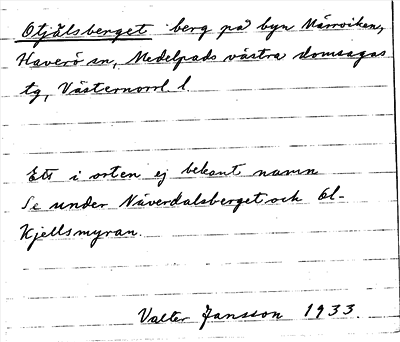 Otjälsberget berg på byn Märrviken,
Haverö sn, Medelpads västra domsagas
tg, Västernorrl l.
Ett i orten ej bekant namn
Se under Näverdalsberget och Ol-
Kjellsmyran.
Valter Jansson 1933.